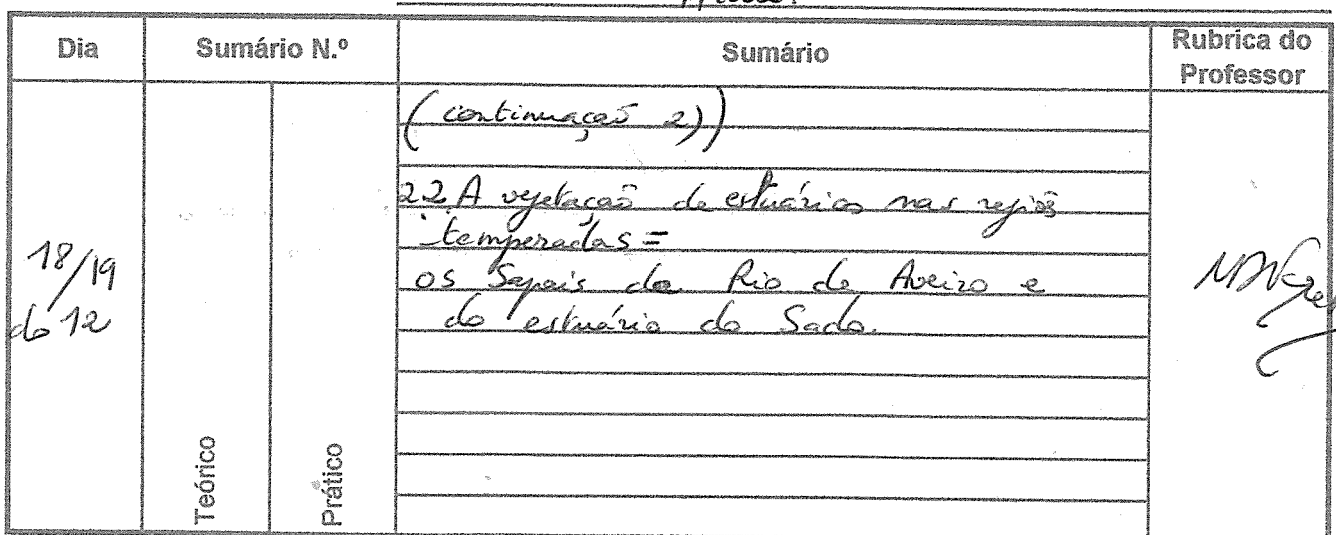 Dia
Sumário N.º
Sumário
Rubrica do
Professor
18/19
do 12
Teórico
Prático
(continuação 2))
2.2 A vegetação de estuários nas regiões
temperadas =
os Sapais da Ria de Aveiro e
do estuário do Sado.